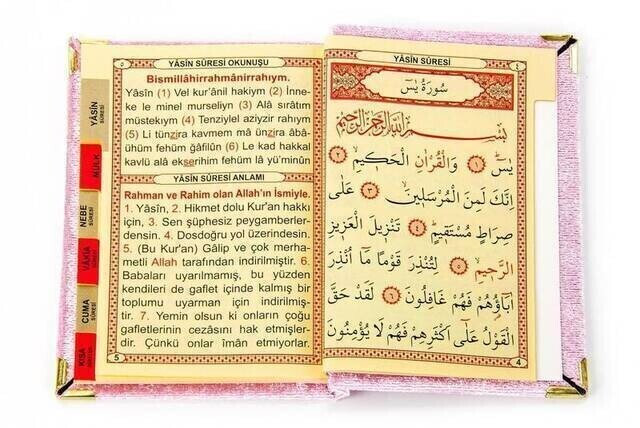 YÂSİN SÛRESİ
٤
سُورَةُ يٰسٓ
بِسْمِ اللّٰهِ الرَّحْمٰنِ الرَّحِيمِ
يٰسٓ ﴿١﴾ وَالْقُرْاٰنِ الْحَكِيمِ ﴿٢﴾
اِنَّكَ لَمِنَ الْمُرْسَلِينَ ﴿٣﴾ عَلٰى
صِرَاطٍ مُسْتَقِيمٍ ﴿٤﴾ تَنْزِيلَ الْعَزِيزِ
الرَّحِيمِ ﴿٥﴾ لِتُنْذِرَ قَوْمًا مَٓا اُنْذِرَ
اٰبَٓاؤُهُمْ فَهُمْ غَافِلُونَ ﴿٦﴾ لَقَدْ حَقَّ
الْقَوْلُ عَلٰٓى اَكْثَرِهِمْ فَهُمْ لَا يُؤْمِنُونَ
4
٥
YÂSİN SÛRESİ OKUNUŞU
Bismillâhirrahmânirrahıym.
Yâsîn (1) Vel kur'ânil hakiym (2) İnne-
ke le minel murseliyn (3) Alâ sırâtım
müstekıym (4) Tenziylel aziyzir rahıym
(5) Li tünzira kavmem mâ ünzira âbâ-
ühüm fehüm ğâfilûn (6) Le kad hakkal
kavlü alâ ekserihim fehüm lâ yü'minûn
YÂSİN SÛRESİ ANLAMI
Rahman ve Rahim olan Allah'ın İsmiyle.
1. Yâsîn, 2. Hikmet dolu Kur'an hakkı
için, 3. Sen şüphesiz peygamberler-
densin. 4. Dosdoğru yol üzerindesin.
5. (Bu Kur'an) Gâlip ve çok merha-
metli Allah tarafından indirilmiştir. 6.
Babaları uyarılmamış, bu yüzden
kendileri de gaflet içinde kalmış bir
toplumu uyarman için indirilmiş-
tir. 7. Yemin olsun ki onların çoğu
gafletlerinin cezâsını hak etmişler-
dir. Çünkü onlar îmân etmiyorlar.
5
YÂSİN
SÛRESİ
MÜLK
NEBE
SÛRESİ
VAKIA
SÛRESİ
CUMA
SÛRESİ
KISA